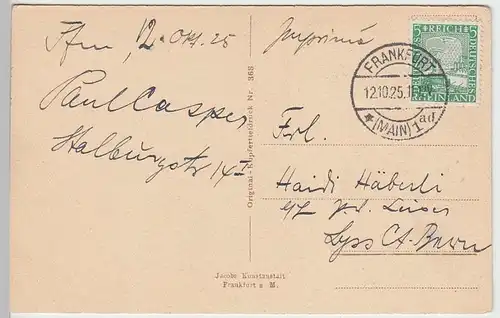 Ffm, 12. Okt. 25
Paul Casper
14 I
Imprimé
Original-Kupfertiefdruck Nr. 368
Jacobs Kunstanstalt
Frankfurt a. M.
DEUTSCHES REICH
5
5
RHEINLAND
FRANKFURT
12.10.25.1
* (MAIN) 1 ad
Frl.
Haidi Häberli
Lyss Ct. Bern